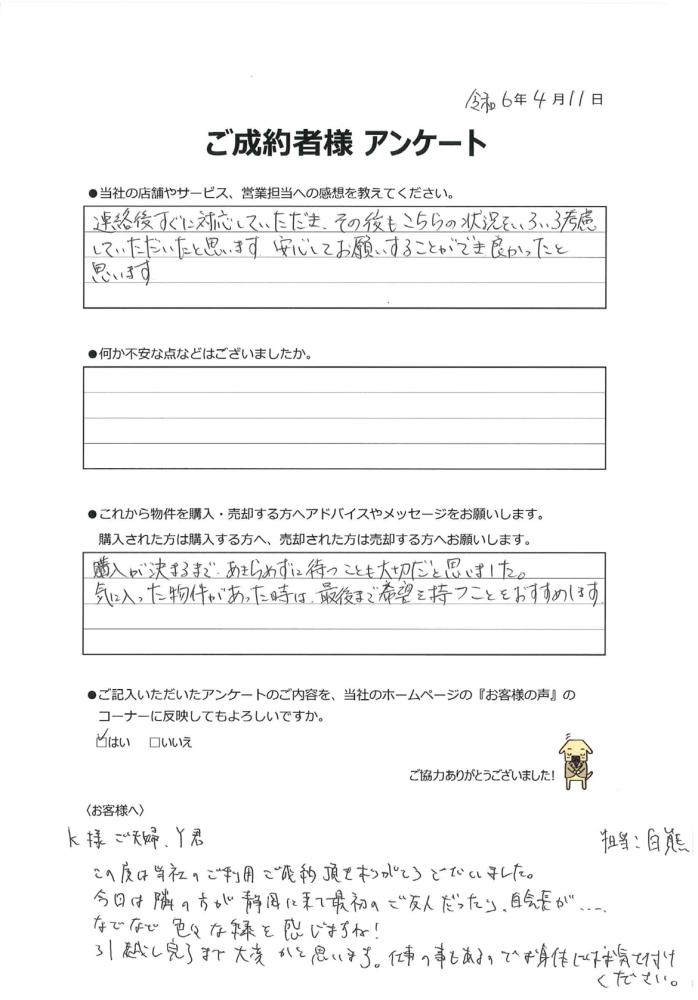 令和6年4月11日
ご成約者様 アンケート
●当社の店舗やサービス、営業担当への感想を教えてください。
連絡後すぐに対応していただき、その後もこちらの状況をいろいろ考慮
していただいたと思います 安心してお願いすることができ良かったと
思います
●何か不安な点などはございましたか。
●これから物件を購入・売却する方へアドバイスやメッセージをお願いします。
購入された方は購入する方へ、売却された方は売却する方へお願いします。
購入が決まるまで、あきらめずに待つことも大切だと思いました。
気に入った物件があった時は、最後まで希望を持つことをおすすめします
●ご記入いただいたアンケートのご内容を、当社のホームページの『お客様の声』の
コーナーに反映してもよろしいですか。
☑はい □いいえ
ご協力ありがとうございました!
〈お客様へ〉
K様ご夫婦、Y君
担当:白熊
この度は当社のご利用 ご成約 頂きありがとうございました。
今日は隣の方が静岡に来て最初のご友人だったり、が....
などなど 色々な縁を感じますね!
引越し完了まで大変かと思います。仕事の事もあるのでお身体にはお気を付け
ください。